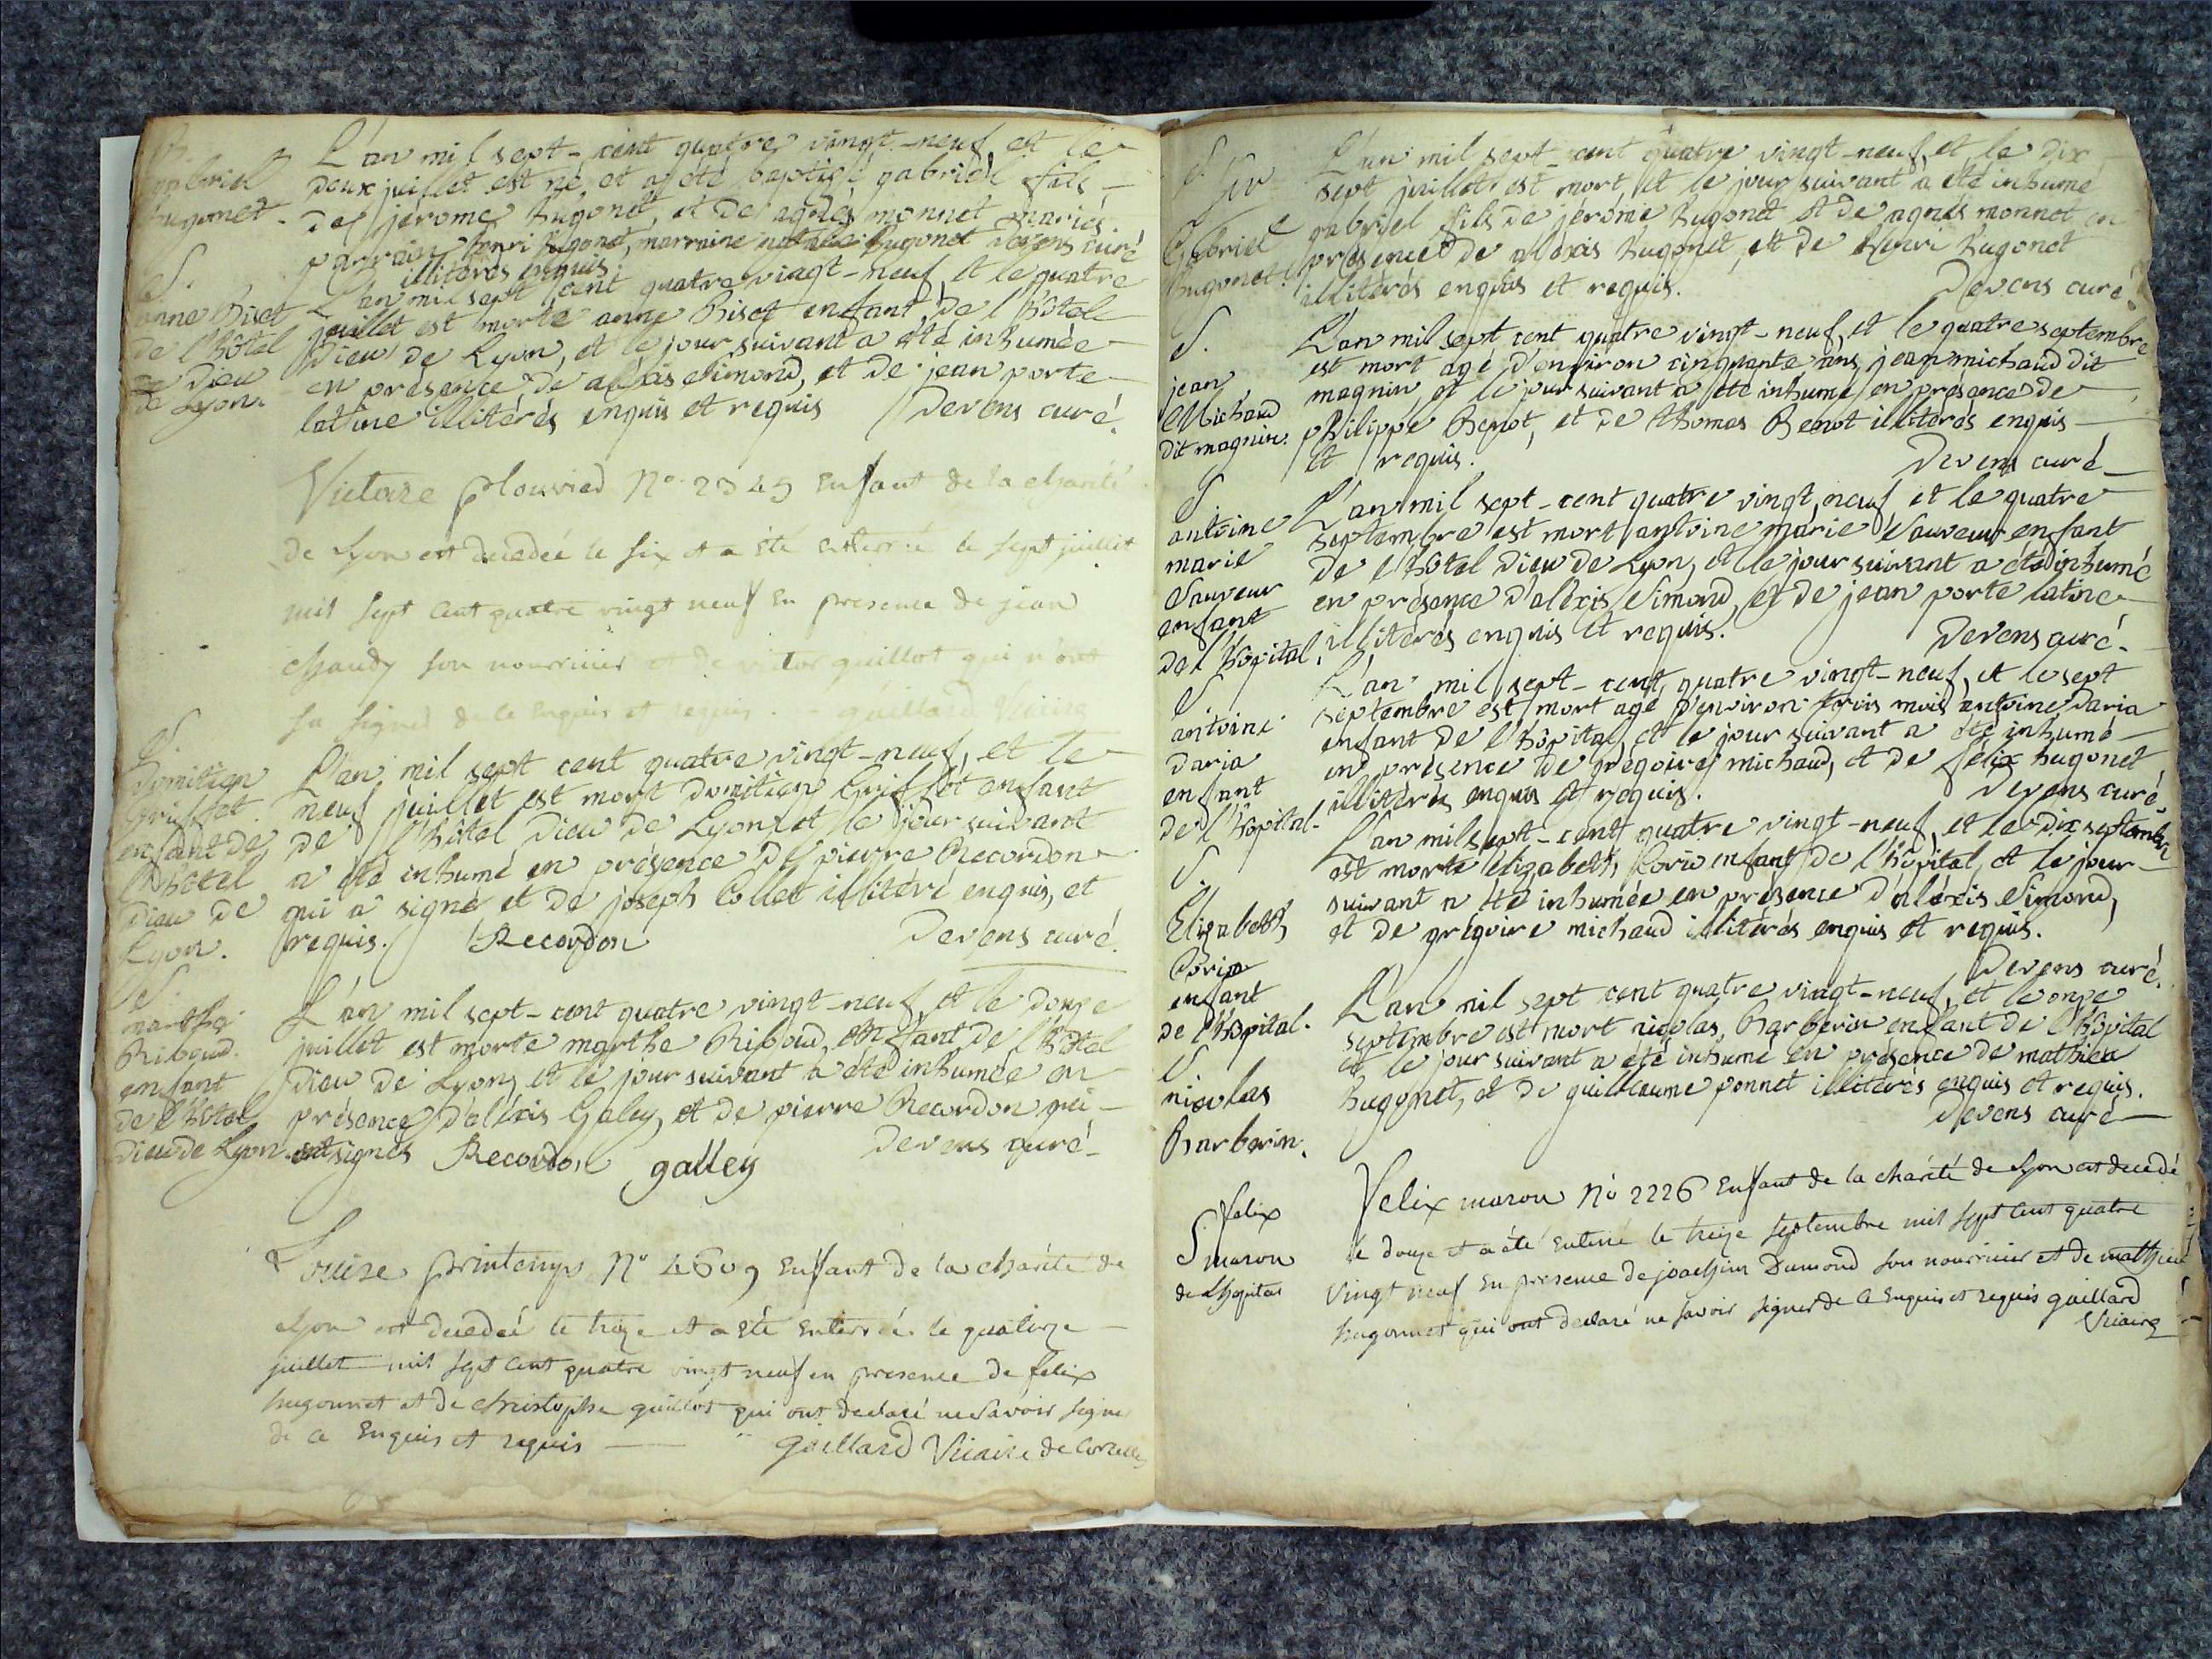 B.
gabriel
hugonet.
L'an mil sept-cent quatre vingt-neuf et le
deux juillet est né, et a été baptisé gabriel fils
de jérome hugonet, et de agnes monnet mariés.
parrain henri hugonet, marraine hugonet devens curé
illitérés enquis
S.
anne Biset
de l'hôtel
de Dieu
de Lyon.
L'an mil sept cent quatre vingt-neuf, et le quatre
juillet est morte anne Biset enfant de l'hôtel
Dieu de Lyon, et le jour suivant a été inhumée
en présence de aléxis Simond, et de jean porte
lattine illitérés enquis et requis Devens curé.
Victoire plouvied N° 2345 enfant de la charité
de Lyon est decedée le six et a ete enterrée le sept juillet
mil sept cent quatre vingt neuf en presence de jean
chaudy son nourricier et de victor guillot qui n'ont
su signer de ce enquis et requis. gaillard Vicaire
S.
Domitien
Griffet.
enfant de
l'hôtel
Dieu de
Lyon.
L'an mil sept cent quatre vingt-neuf, et le
neuf juillet est mort Domitien Griffet enfant
de l'hôtel Dieu de Lyon et le jour suivant
a été inhumé en présence de pierre Recordon
qui a signé et de joseph Collet illitéré enquis, et
requis. Recordon Devens curé.
S.
marthe
Riboud.
enfant
de l'hôtel
Dieu de Lyon.
L'an mil sept-cent quatre vingt-neuf, et le douze
juillet est morte marthe Riboud, enfant de l'hôtel
Dieu de Lyon, et le jour suivant a été inhumée en
présence d'aléxis Galey, et de pierre Recordon qui
ont signés Recordon galley Devens curé
Louise printemps N° 4609 enfant de la charité de
Lyon est decedée le treize et a ete enterrée le quatorze
juillet mil sept cent quatre vingt neuf en presence de felix
hugonnet et de christophe guillot qui ont declaré ne savoir signer
de ce enquis et requis gaillard Vicaire de Corcelles
S.
Gabriel
hugonet.
L'an mil sept-cent quatre vingt-neuf et le dix
sept juillet est mort et le jour suivant a été inhumé
gabriel fils de jérôme hugonet et de agnès monnet en
présence de aléxis hugonet, et de henri hugonet
illitérés enquis et requis. Devens curé
S.
jean
Michaud
dit magnin.
L'an mil sept cent quatre vingt-neuf et le quatre septembre
est mort agé d'environ cinquante ans jean michaud dit
magnin, et le jour suivant a été inhumé en présence de
philippe Benot, et de thomas Benot illitérés enquis
et requis. Devens curé
S.
antoine
marie
Sauveur
enfant
de l'hôpital.
L'an mil sept-cent quatre vingt neuf et le quatre
septembre est mort antoine marie Sauveur enfant
de l'hôtel Dieu de Lyon, et le jour suivant a été inhumé
en présence d'aléxis Simond, et de jean porte latine
illitérés enquis et requis. Devens curé.
S.
antoine
Daria
enfant
de l'hôpital.
L'an mil sept-cent quatre vingt-neuf, et le sept
septembre est mort agé d'environ trois mois antoine Daria
enfant de l'hôpital, et le jour suivant a été inhumé
en présence de grégoire michaud, et de félix hugonet
illitérés enquis et requis. Devens curé.
S.
Elizabeth
Loria
enfant
de l'hôpital.
L'an mil sept-cent quatre vingt-neuf, et le dix septembre
est morte elizabeth Loria enfant de l'hôpital, et le jour
suivant a été inhumée en présence d'aléxis Simond,
et de grégoire michaud illitérés enquis et requis.
Devens curé.
S.
nicolas
Barberin.
L'an mil sept cent quatre vingt-neuf, et le onze
septembre est mort nicolas Barberin enfant de l'hôpital
et le jour suivant a été inhumé en présence de mathieu
hugonet, et de guillaume ponnet illitérés enquis et requis.
Devens curé
felix
S maron
de lhopital
Felix maron N° 2226 enfant de la charité de Lyon est decedé
le douze et a été enterré le treize septembre mil sept cent quatre
vingt neuf en presence de joachim Dumond son nourricier et de mathieu
hugonnet qui ont declaré ne savoir signer de ce enquis et requis gaillard
Vicaire